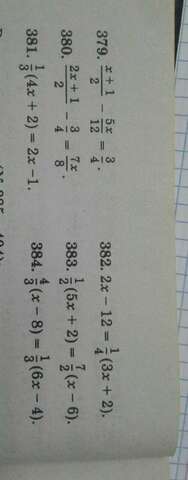 379. \frac{x+1}{2} - \frac{5x}{12} = \frac{3}{4}.
380. \frac{2x+1}{2} - \frac{3}{4} = \frac{7x}{8}.
381. \frac{1}{3}(4x + 2) = 2x - 1.
382. 2x - 12 = \frac{1}{4}(3x + 2).
383. \frac{1}{2}(5x + 2) = \frac{7}{2}(x - 6).
384. \frac{4}{3}(x - 8) = \frac{1}{3}(6x - 4).